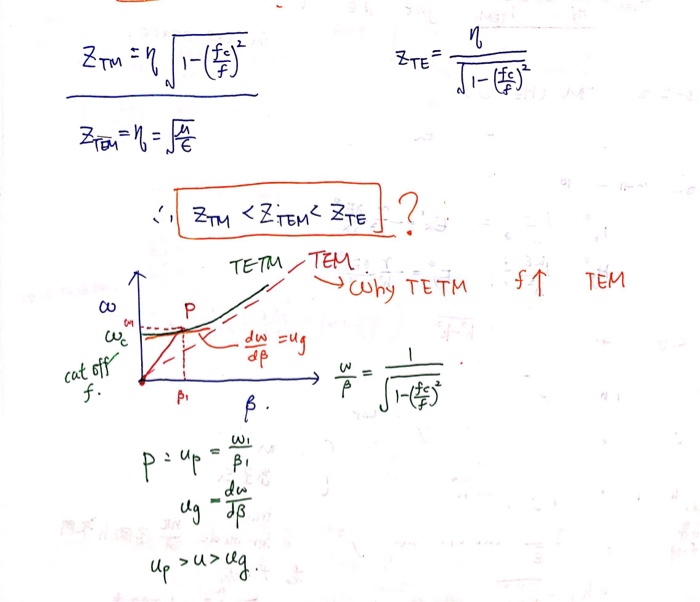 Z_TM = η √(1-(fc/f)²)
Z_TE = η / √(1-(fc/f)²)
Z_TEM = η = √(μ/ε)
∴ Z_TM < Z_TEM < Z_TE ?
TETM TEM
→ Why TETM f↑ TEM
ω
ω₁
ωc
P
dω/dβ = ug
cat off
f.
β₁
β.
ω/β = 1 / √(1-(fc/f)²)
P : up = ω₁/β₁
ug = dω/dβ
up > u > ug.